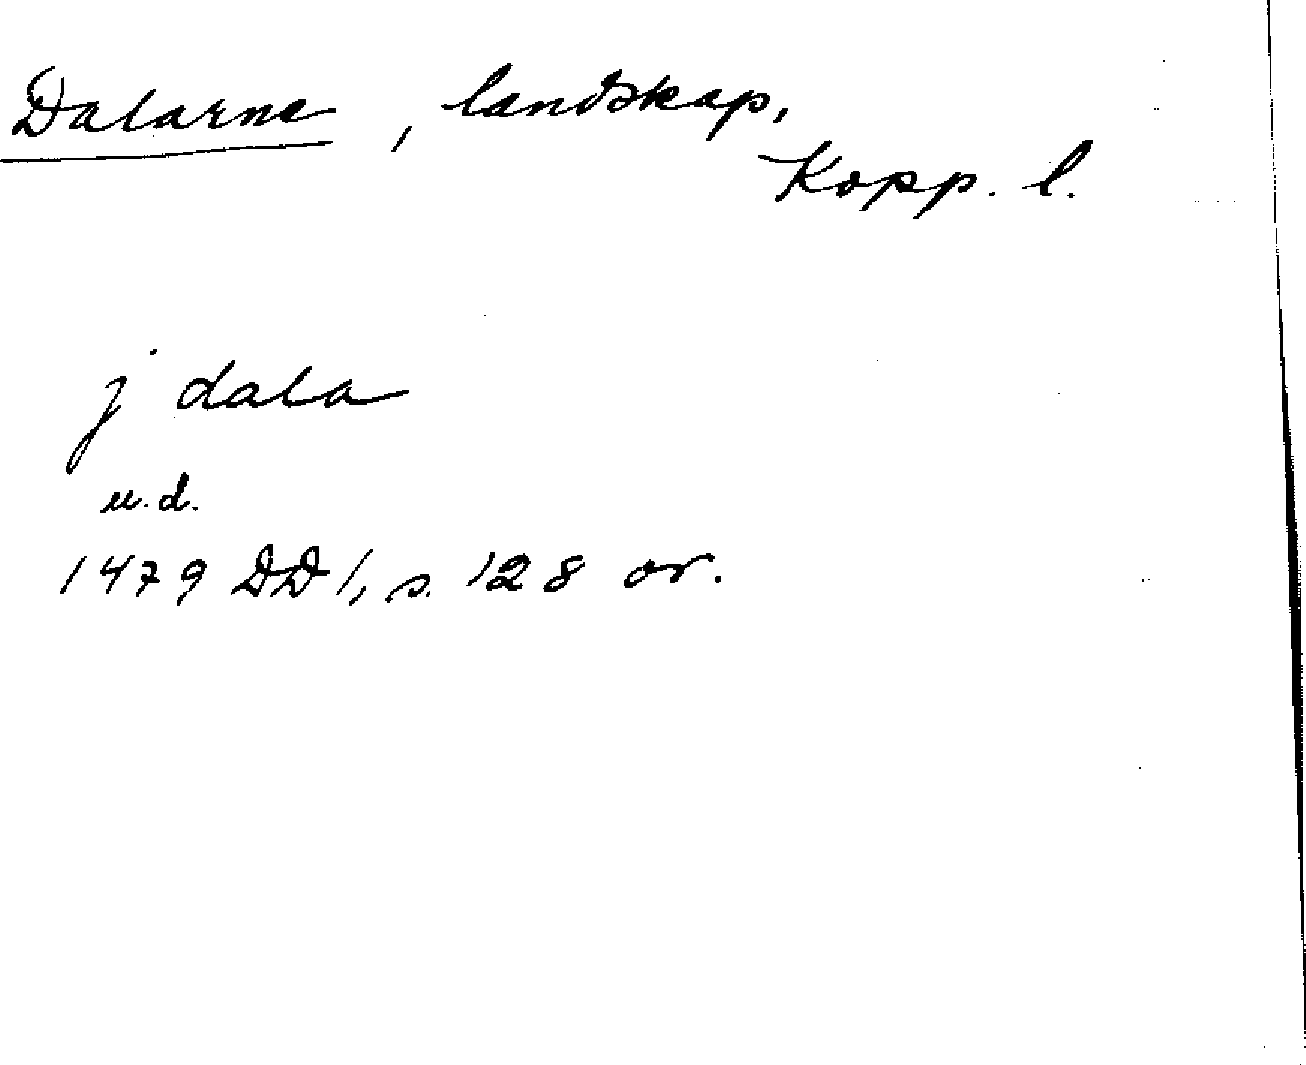 Dalarne, landskap,
Kopp. l.
j dala
u.d.
1479 DD 1, s. 128 or.